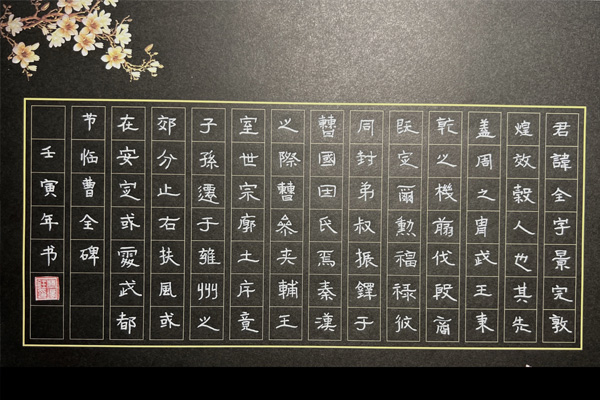 君諱全字景完敦
煌效穀人也其先
蓋周之胄武王秉
乾之機翦伐殷商
既定爾勳福祿攸
同封弟叔振鐸于
曹國因氏焉秦漢
之際曹參夾輔王
室世宗廓土斥竟
子孫遷于雍州之
郊分止右扶風或
在安定或處武都
节临曹全碑
壬寅年书